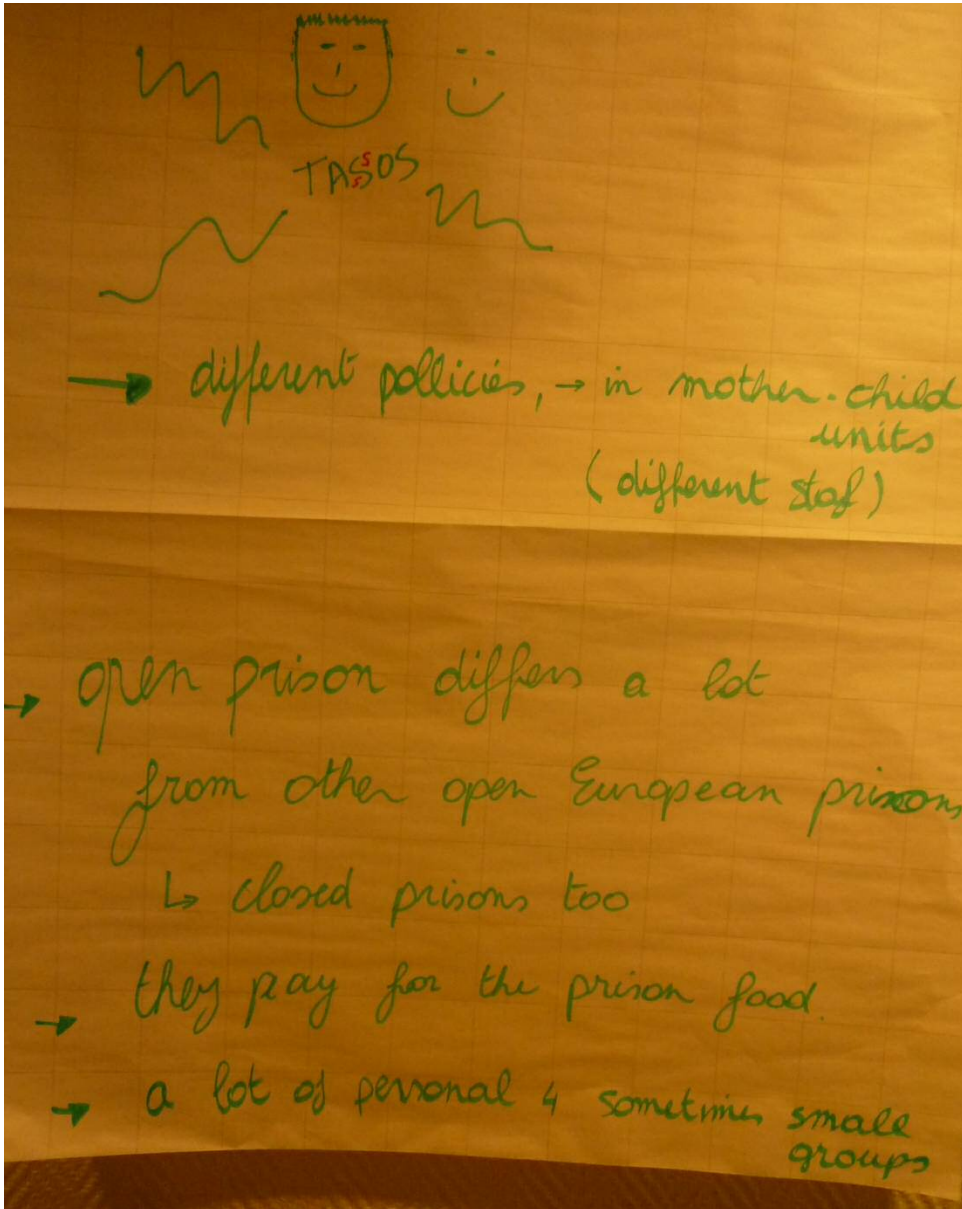 TASSOS
→ different pollicies, → in mother-child
units
(different staf)
→ open prison differs a lot
from other open European prisons
↳ closed prisons too
→ they pay for the prison food.
→ a lot of personal 4 sometimes small
groups